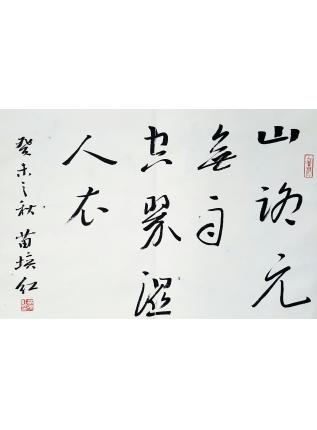 山路元
無雨
空翠濕
人衣
癸未之秋 苗培红